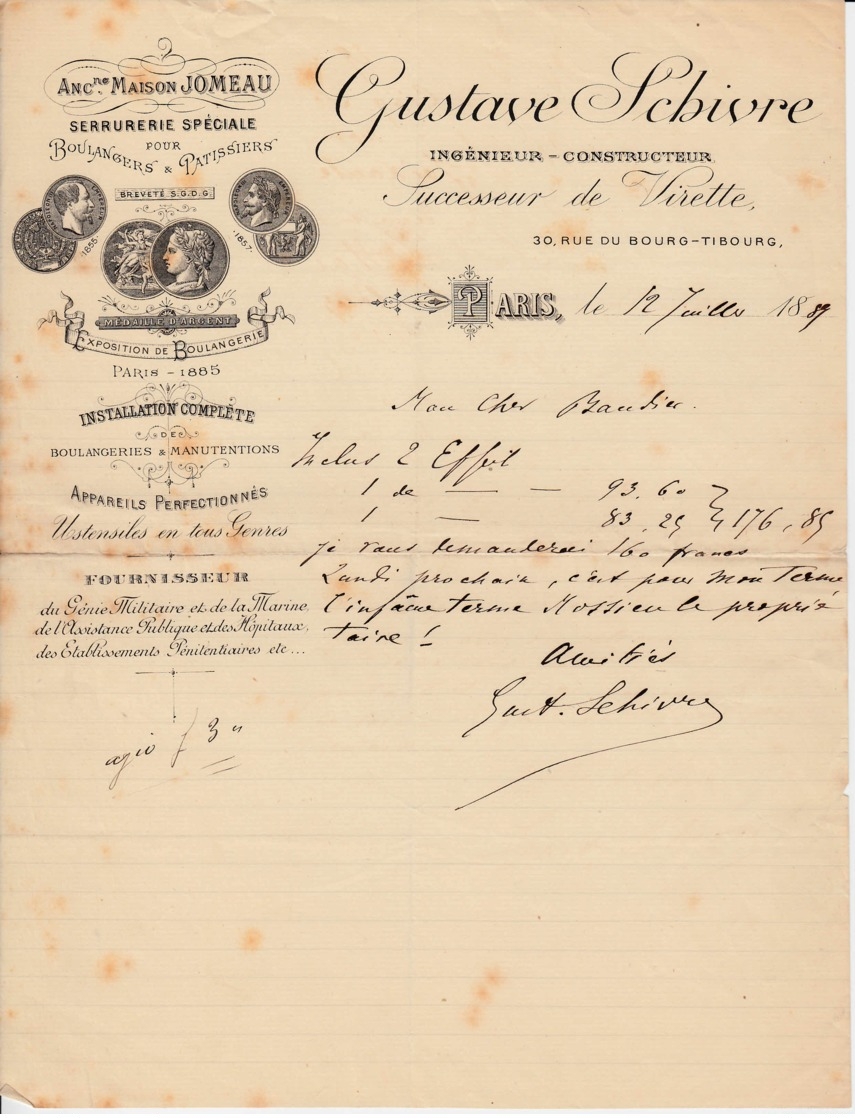 Anc.ne Maison JOMEAU
SERRURERIE SPÉCIALE
POUR
BOULANGERS & PATISSIERS
BREVETÉ S.G.D.G.
NAPOLEON III EMPEREUR
1855
1857
MÉDAILLE D'ARGENT
EXPOSITION DE BOULANGERIE
PARIS - 1885
INSTALLATION COMPLÈTE
DE
BOULANGERIES & MANUTENTIONS
APPAREILS PERFECTIONNÉS
Ustensiles en tous Genres
FOURNISSEUR
du Génie Militaire et de la Marine,
de l'Assistance Publique et des Hôpitaux,
des Etablissements Pénitentiaires etc...
agio f 3 "
Gustave Schivre
INGÉNIEUR - CONSTRUCTEUR
Successeur de Virette,
30, RUE DU BOURG-TIBOURG,
PARIS, le 12 Juillet 1889
Mon Cher Baudier.
Inclus 2 Effets
1 de — — 93.60
1 — 83.25 } 176,85
je vous demanderai 160 francs
Lundi prochain, c'est pour mon terme
l'infâme terme Mossieu le proprié
taire !
Amitiés
Gust. Schivre